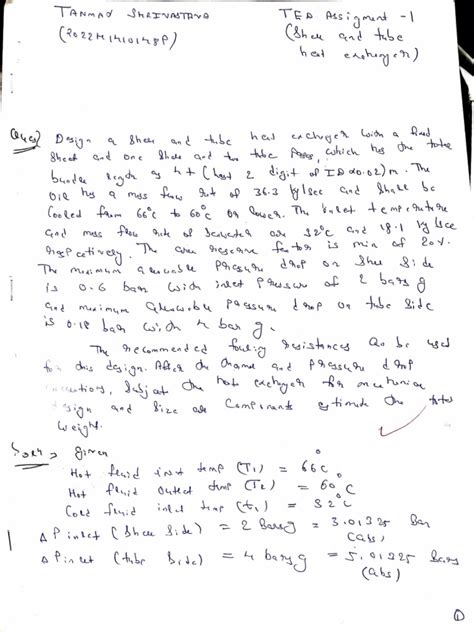 TANMAY SHRIVASTAVA
(2022H1410148P)
TED Assigment -1
(Shell and tube
heat exchanger)
Ques) Design a Shell and tube heat exchanger with a fixed
sheet and one shell and two tube Pass, which has the total
bundle length of 4 + (last 2 digit of ID x 0.02) m. The
Oil has a mass flow rat of 36.3 kg/sec and Shall be
Cooled from 66°C to 60°C or lower. The inlet temperature
and mass flow rate of Seawater are 32°C and 18.1 kg/sec
respectively. The area reserve factor is min of 20%.
The maximum allowable Pressure drop on Shell Side
is 0.6 bar with inlet Pressure of 2 bars g
and maximum allowable pressure drop on tube Side
is 0.18 bar with 4 bar g.
The recommended fouling resistances can be used
for this design. After the thermal and Pressure drop
Subject the heat exchanger for mechanical
design and Size all Components estimate the total
weight.
Soln > given
Hot fluid inlet temp (T1) = 66°C
Hot fluid outlet temp (T2) = 60°C
Cold fluid inlet temp (t1) = 32°C
Δ P inlet (Shell Side) = 2 barsg = 3.01325 bar
(abs)
Δ P inlet (tube Side) = 4 barsg = 5.01325 bars
(abs)
1